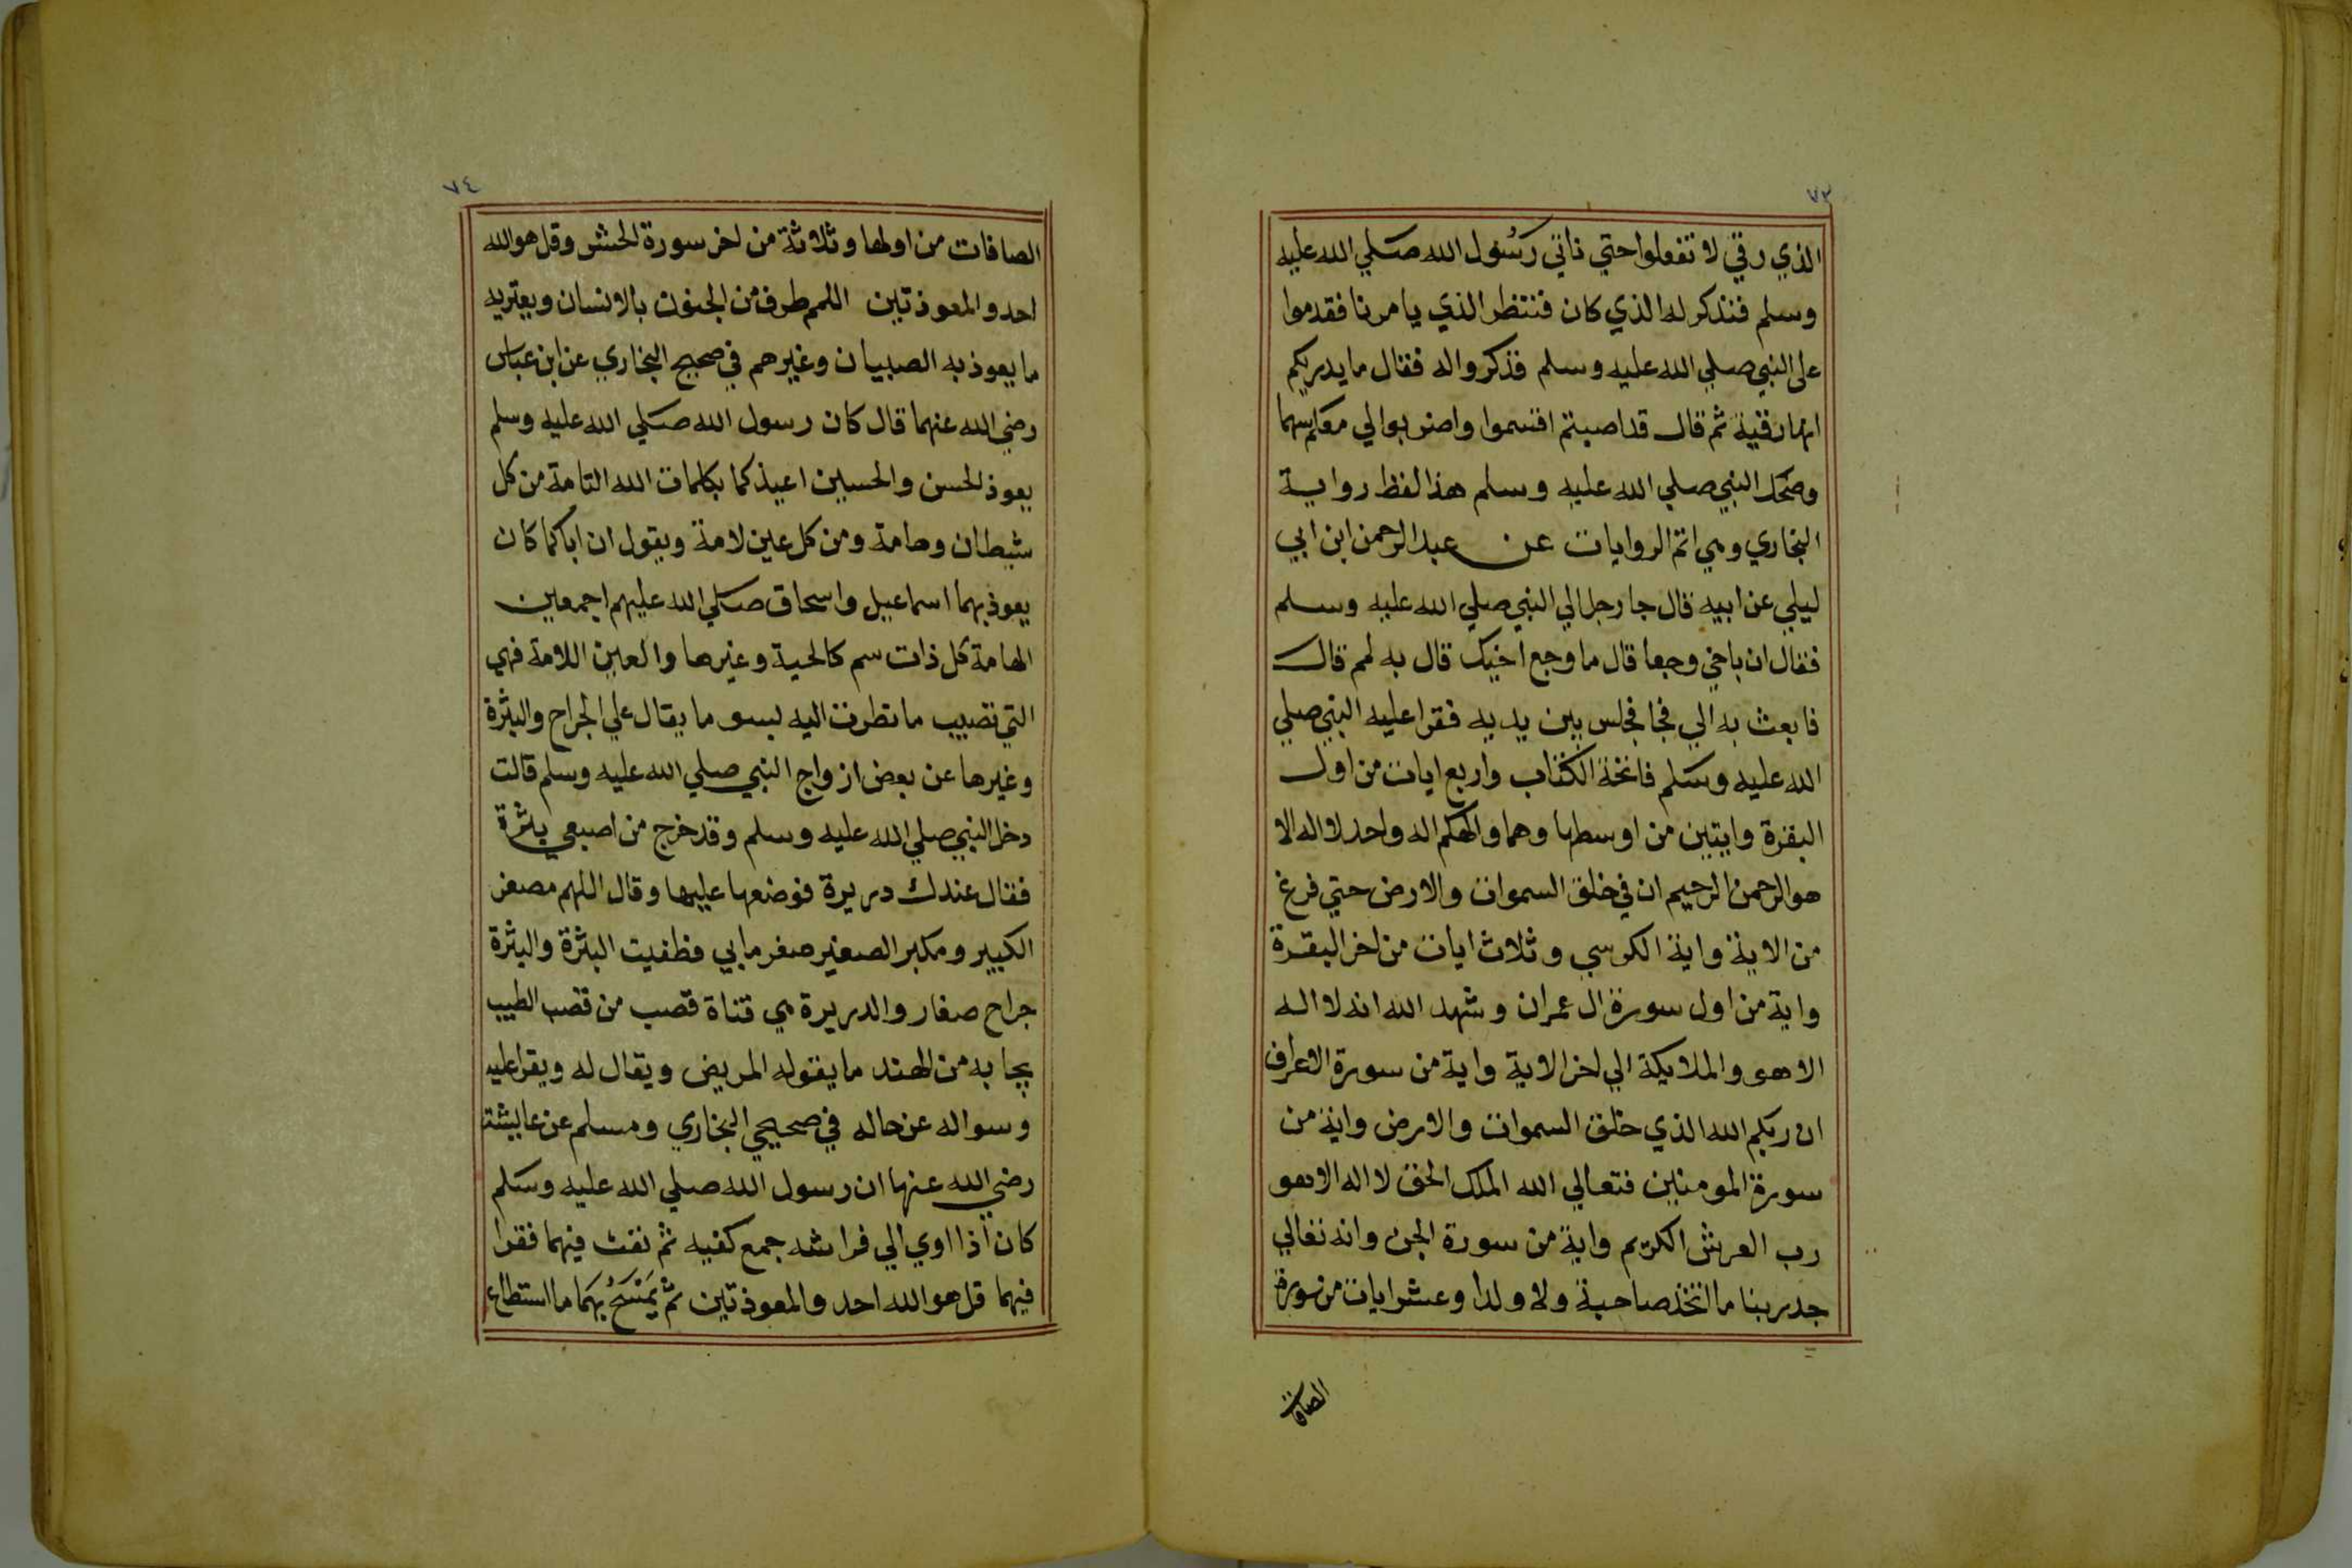 ٧٣
الذي رقي لا تفعلوا حتي ناتي رَسُول الله صَلي الله عليه
وسلم فنذكر له الذي كان فننتظر الذي يامرنا فقدموا
على النبي صلي الله عليه وسلم فذكروا له فقال ما يدريكم
انها رقية ثم قال قد اصبتم اقسموا واضربوا لي معكم سهما
وضحك النبي صلي الله عليه وسلم هذا لفظ رواية
البخاري وهي اتم الروايات عن عبد الرحمن ابن ابي
ليلي عن ابيه قال جا رجل الي النبي صلي الله عليه وسلم
فقال ان باخي وجعا قال ما وجع اخيك قال به لمم قال
فابعث به الي فجا فجلس بين يديه فقرا عليه النبي صلي
الله عليه وسَلم فاتحة الكتاب واربع ايات من اول
البقرة وايتين من اوسطها وهما والهكم اله واحد لا اله الا
هو الرحمن الرحيم ان في خلق السموات والارض حتي فرغ
من الاية واية الكرسي وثلاث ايات من اخر البقرة
واية من اول سورة ال عمران وشهد الله انه لا اله
الا هو والملايكة الي اخر الاية واية من سورة الاعراف
ان ربكم الله الذي خلق السموات والارض واية من
سورة المومنين فتعالي الله الملك الحق لا اله الا هو
رب العرش الكريم واية من سورة الجن وانه تعالي
جد ربنا ما اتخذ صاحبة ولا ولدا وعشر ايات من سورة
الصافات
٧٤
الصافات من اولها وثلاثة من اخر سورة الحشر وقل هو الله
احد والمعوذتين اللمم طرف من الجنون بالانسان ويعتريه
ما يعوذ به الصبيان وغيرهم في صحيح البخاري عن ابن عباس
رضي الله عنهما قال كان رسول الله صَلي الله عليه وسلم
يعوذ لحسن والحسين اعيذكما بكلمات الله التامة من كل
شيطان وهامة ومن كل عين لامة ويقول ان اباكما كان
يعوذ بهما اسماعيل واسحاق صَلي الله عليهم اجمعين
الهامة كل ذات سم كالحية وغيرها والعين اللامة فهي
التي تصيب ما نظرت اليه بسو ما يقال علي الجراح والبثرة
وغيرها عن بعض ازواج النبي صلي الله عليه وسلم قالت
دخل النبي صلي الله عليه وسلم وقد خرج من اصبعي بثرة
فقال عندك دريرة فوضعها عليها وقال اللهم مصغر
الكبير ومكبر الصغير صغر ما بي فطفيت البثرة والبثرة
جراح صغار والدريرة هي قتاة قصب من قصب الطيب
يجا به من الهند ما يقوله المريض ويقال له ويقرا عليه
وسواله عن حاله في صحيحي البخاري ومسلم عن عايشة
رضي الله عنها ان رسول الله صلي الله عليه وسَلم
كان اذا اوي الي فراشه جمع كفيه ثم نفث فيهما فقرا
فيهما قل هو الله احد والمعوذتين ثم يَمْسَحُ بهما ما استطاع